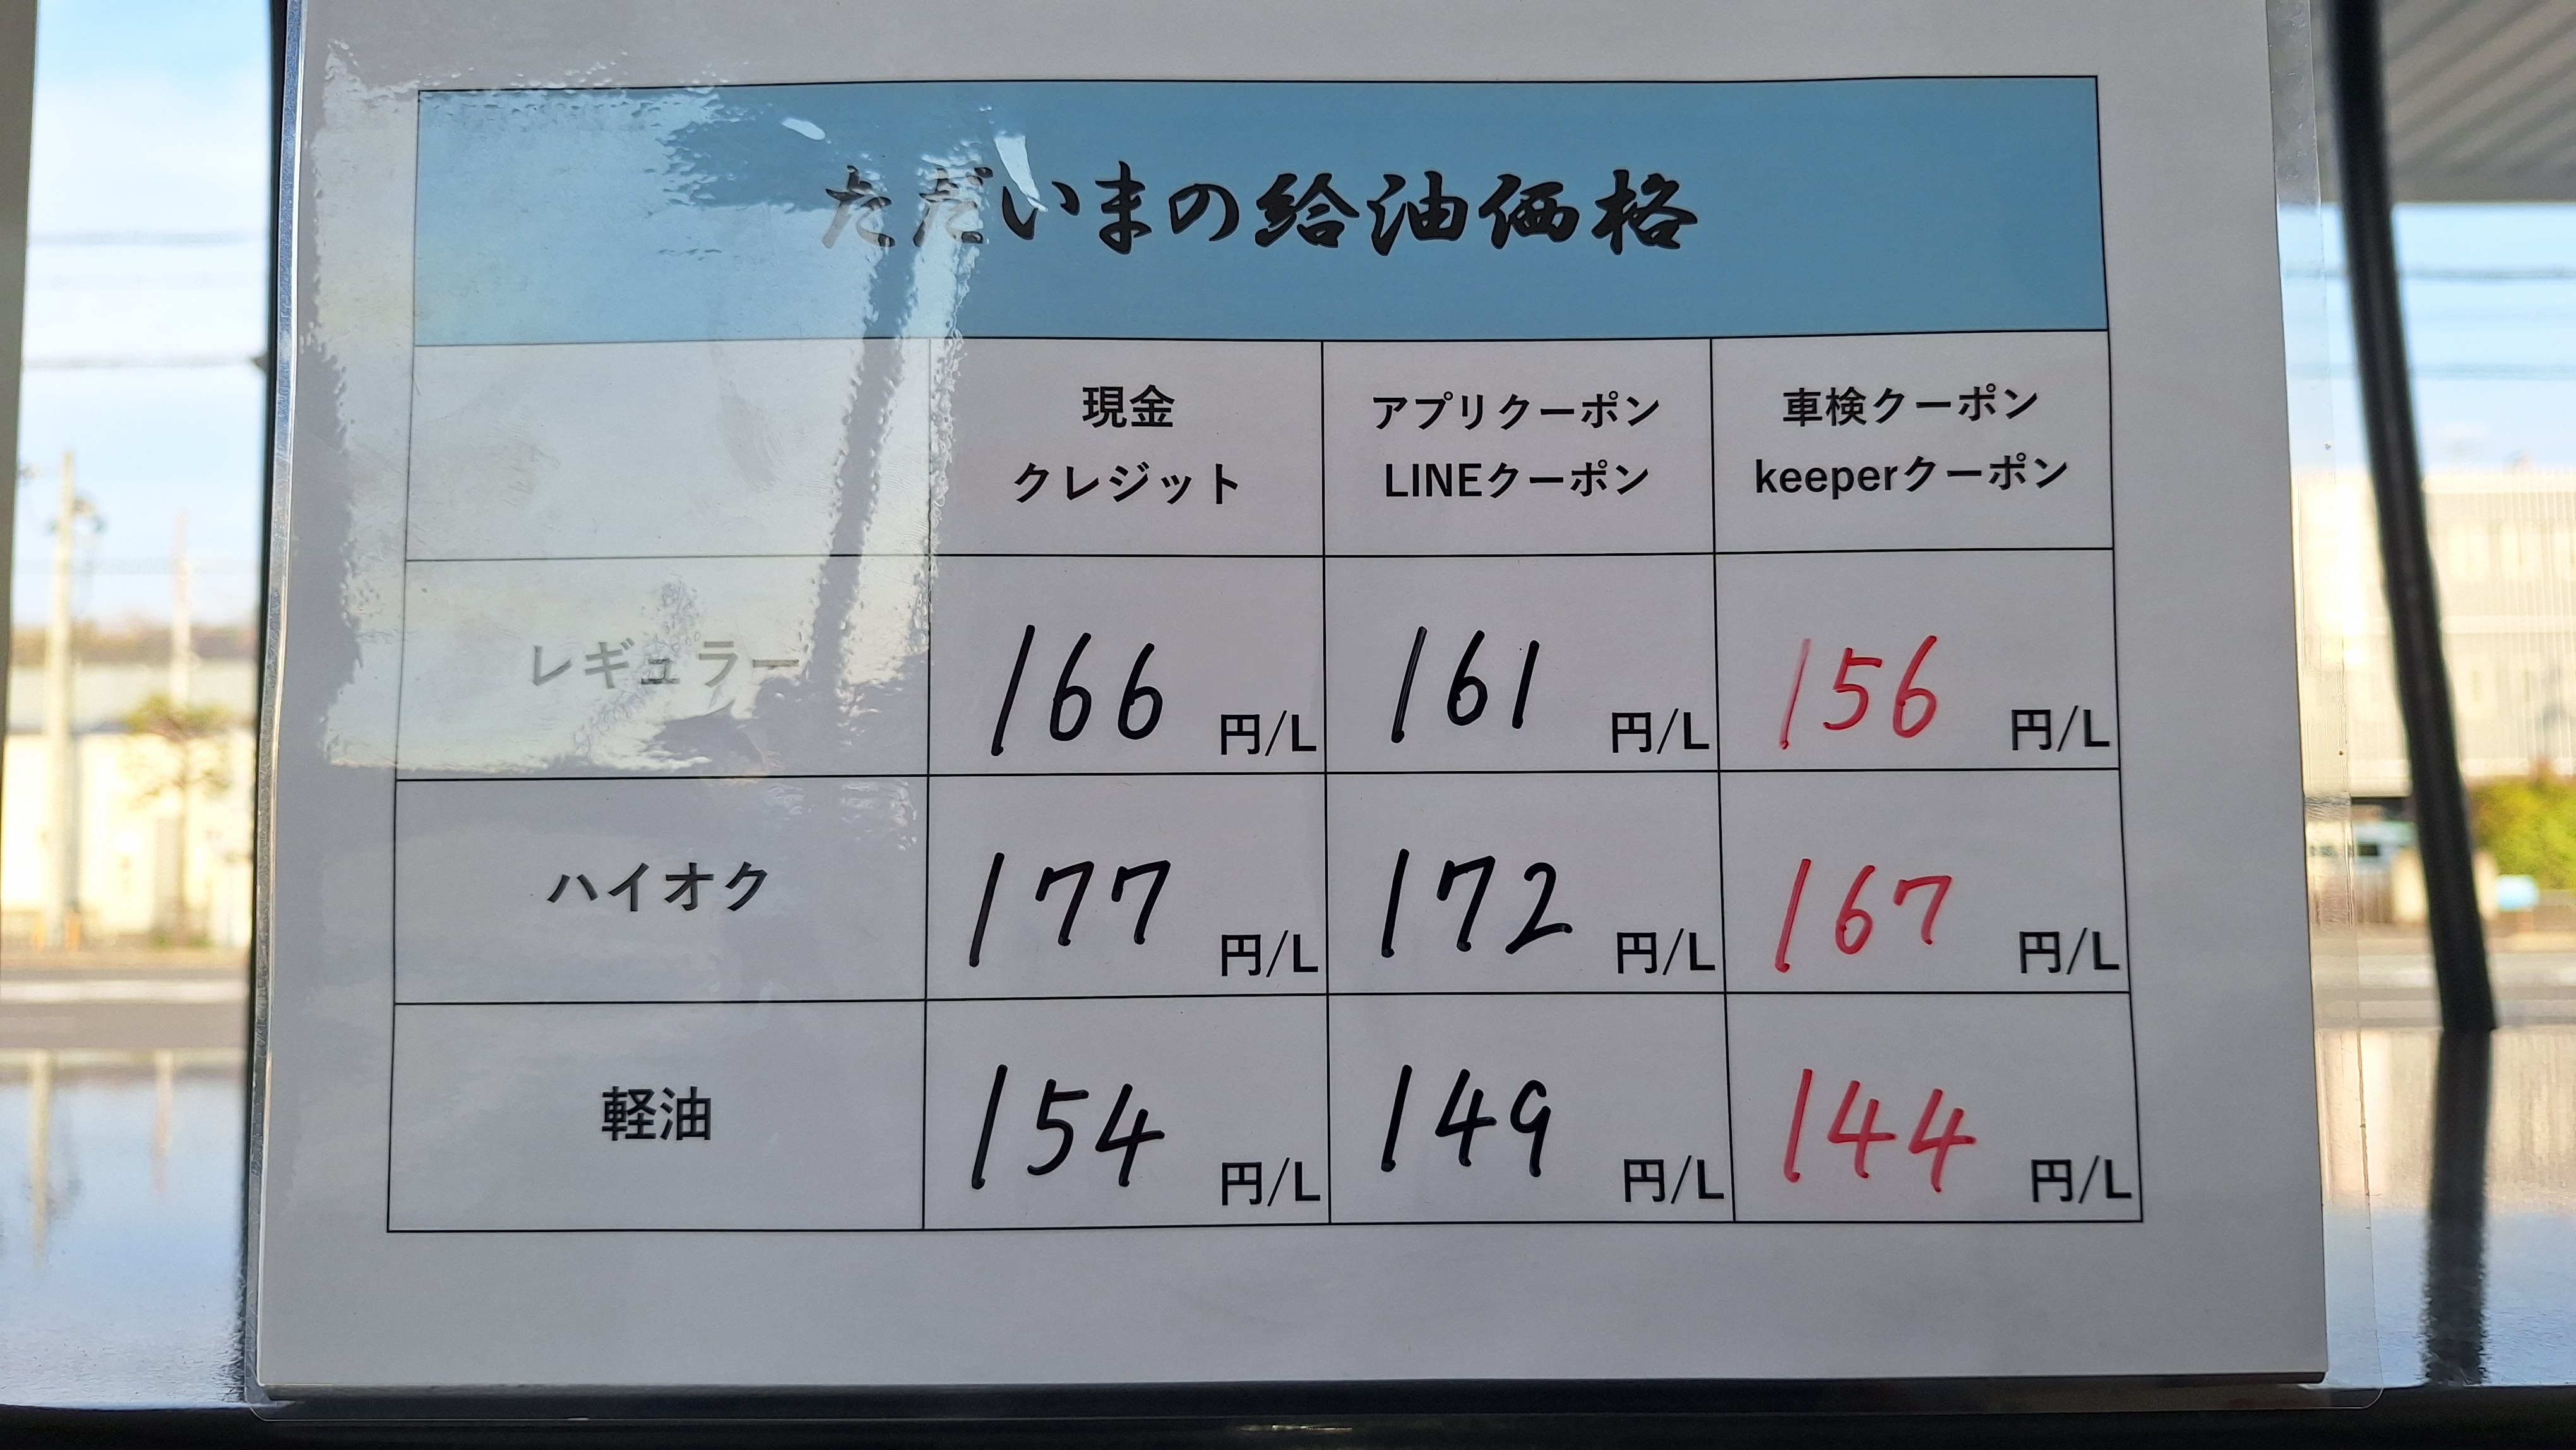 ただいまの給油価格
現金
クレジット
アプリクーポン
LINEクーポン
車検クーポン
keeperクーポン
レギュラー 166 円/L 161 円/L 156 円/L
ハイオク 177 円/L 172 円/L 167 円/L
軽油 154 円/L 149 円/L 144 円/L